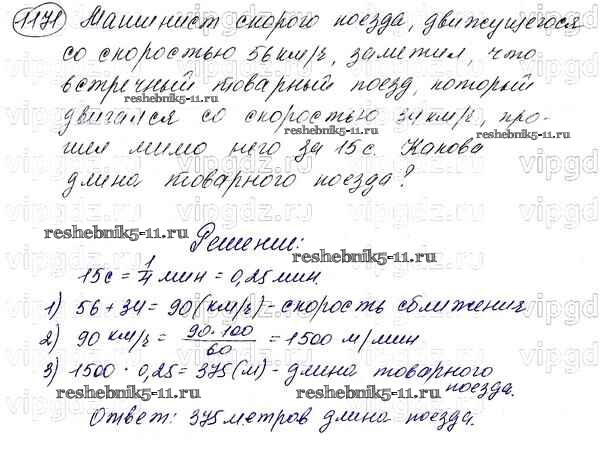 1171 Машинист скорого поезда, движущегося
со скоростью 56 км/ч, заметил, что
встречный товарный поезд, который
reshebnik5-11.ru
двигался со скоростью 34 км/ч, про-
reshebnik5-11.ru
reshebnik5-11.ru
шел мимо него за 15 с. Какова
длина товарного поезда?
reshebnik5-11.ru
Решение:
reshebnik5-11.ru
15с = 1/4 мин = 0,25 мин.
1) 56 + 34 = 90 (км/ч) - скорость сближения
2) 90 км/ч = 90·100/60 = 1500 м/мин
3) 1500 · 0,25 = 375 (м) - длина товарного
поезда.
reshebnik5-11.ru
reshebnik5-11.ru
Ответ: 375 метров длина поезда.